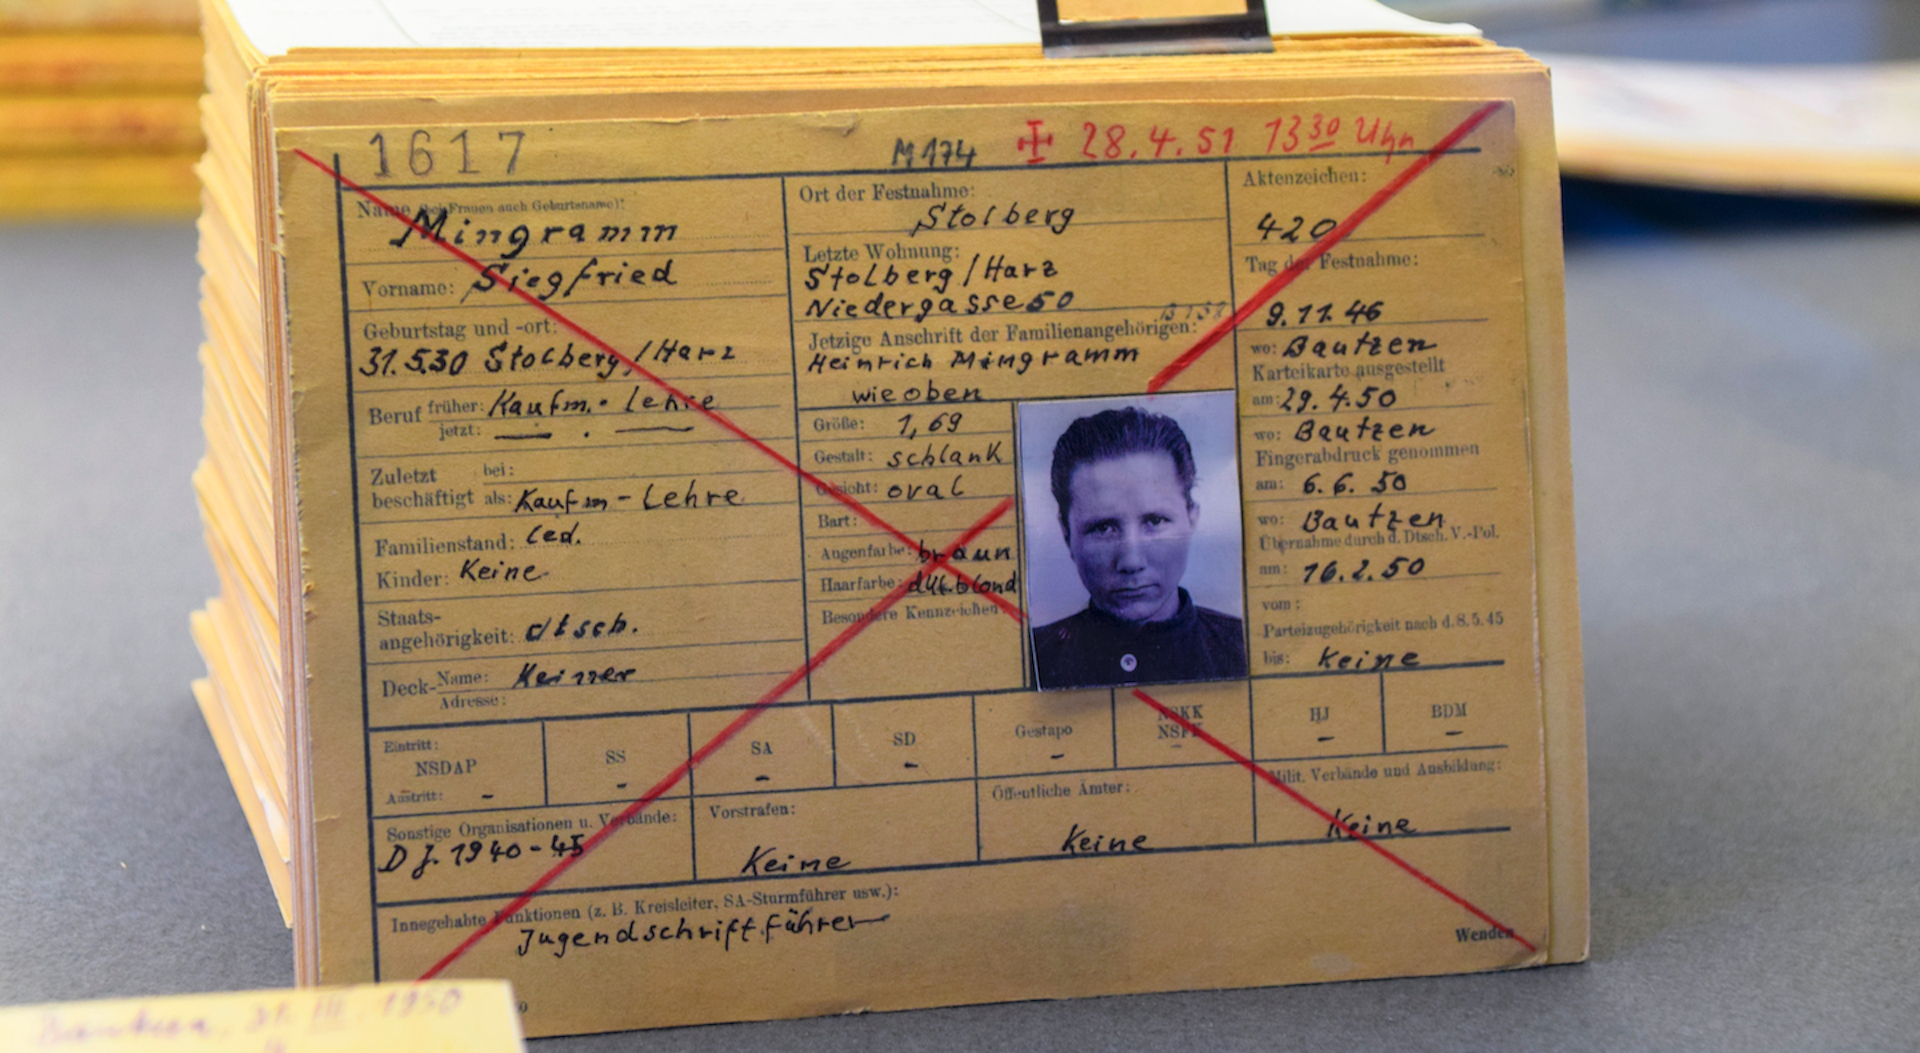 1617
M174
☩ 28.4.51 13³⁰ Uhr
Name (bei Frauen auch Geburtsname):
Mingramm
Vorname: Siegfried
Geburtstag und -ort:
31.5.30 Stolberg/Harz
Beruf früher: Kaufm.-Lehre
jetzt: — . —
Zuletzt bei:
beschäftigt als: Kaufm-Lehre
Familienstand: led.
Kinder: Keine
Staats-
angehörigkeit: dtsch.
Deck-Name:
Adresse:
Ort der Festnahme:
Stolberg
Letzte Wohnung:
Stolberg/Harz
Niedergasse 50
Jetzige Anschrift der Familienangehörigen:
Heinrich Mingramm
wie oben
Größe: 1,69
Gestalt: schlank
Gesicht: oval
Bart:
Augenfarbe: braun
Haarfarbe: dklblond
Besondere Kennzeichen:
Aktenzeichen:
420
Tag der Festnahme:
9.11.46
wo: Bautzen
Karteikarte ausgestellt
am: 29.4.50
wo: Bautzen
Fingerabdruck genommen
am: 6.6.50
wo: Bautzen
Übernahme durch d. Dtsch. V.-Pol.
am: 16.2.50
vom:
Parteizugehörigkeit nach d. 8.5.45
bis: Keine
Eintritt:
NSDAP
Austritt: -
SS
-
SA
-
SD
-
Gestapo
-
NSKK
NSFK
-
HJ
-
BDM
-
Sonstige Organisationen u. Verbände:
DJ. 1940-45
Vorstrafen:
Keine
Öffentliche Ämter:
Keine
Milit. Verbände und Ausbildung:
Keine
Innegehabte Funktionen (z. B. Kreisleiter, SA-Sturmführer usw.):
Jugendschriftführer
Wenden
Bautzen, 31. III. 1950